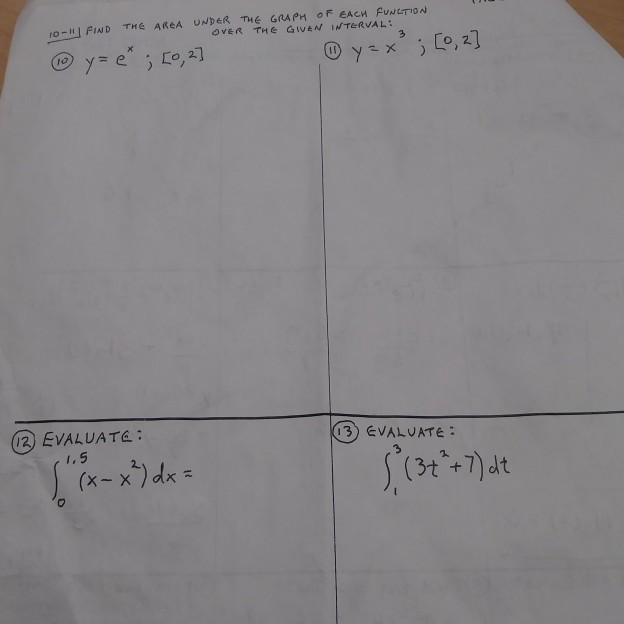 10-11] FIND THE AREA UNDER THE GRAPH OF EACH FUNCTION
OVER THE GIVEN INTERVAL:
⑩ y = eˣ ; [0,2]
⑪ y = x³ ; [0,2]
⑫ EVALUATE:
∫₀¹·⁵ (x - x²) dx =
⑬ EVALUATE:
∫₁³ (3t² + 7) dt